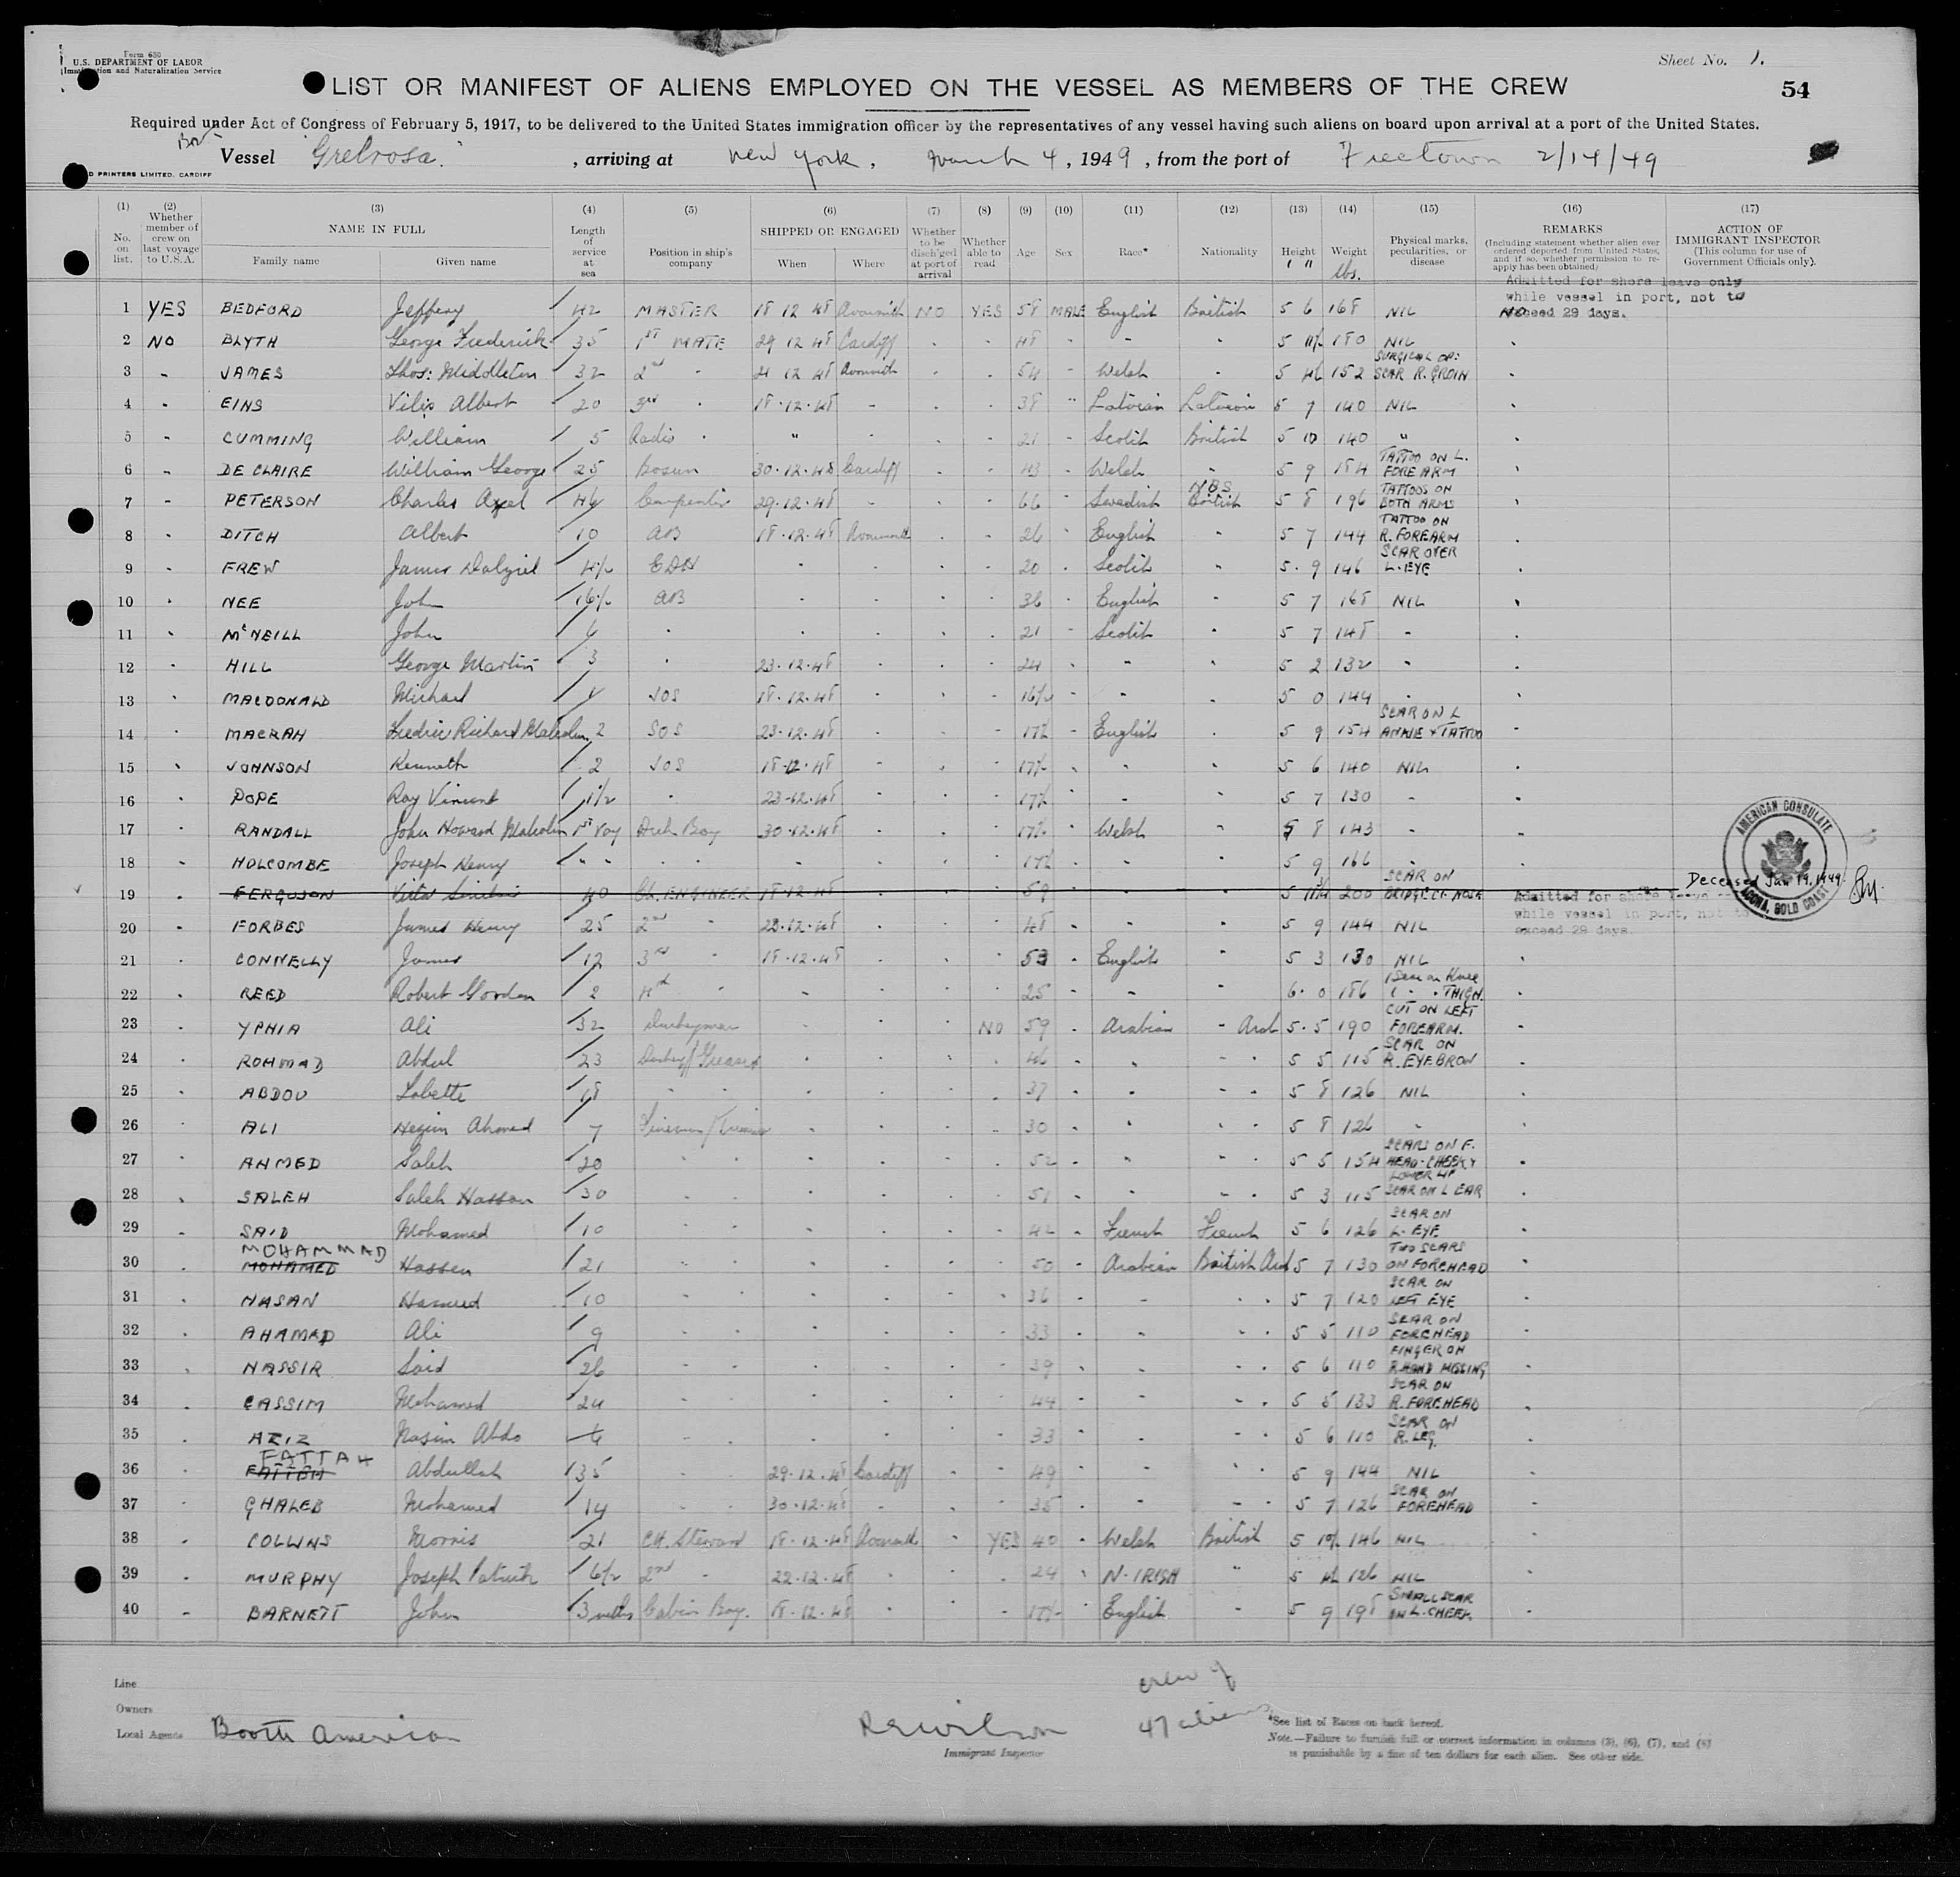 Form 680
U.S. DEPARTMENT OF LABOR
Immigration and Naturalization Service
Sheet No. 1.
LIST OR MANIFEST OF ALIENS EMPLOYED ON THE VESSEL AS MEMBERS OF THE CREW
54
Required under Act of Congress of February 5, 1917, to be delivered to the United States immigration officer by the representatives of any vessel having such aliens on board upon arrival at a port of the United States.
Vessel "Grelrosa" , arriving at New York, March 4, 1949, from the port of Freetown 2/14/49
D PRINTERS LIMITED. CARDIFF
(1) No. on list. (2) Whether member of crew on last voyage to U.S.A. (3) NAME IN FULL Family name Given name (4) Length of service at sea (5) Position in ship's company (6) SHIPPED OR ENGAGED When Where (7) Whether to be disch'ged at port of arrival (8) Whether able to read (9) Age (10) Sex (11) Race* (12) Nationality (13) Height ' " (14) Weight lbs. (15) Physical marks, peculiarities, or disease (16) REMARKS (Including statement whether alien ever ordered deported from United States, and if so, whether permission to re-apply has been obtained) (17) ACTION OF IMMIGRANT INSPECTOR (This column for use of Government Officials only).
Admitted for shore leave only while vessel in port, not to exceed 29 days.
1 YES BEDFORD Jeffery 42 MASTER 18 12 48 Avonmouth NO YES 58 MALE English British 5 6 168 NIL NO
2 NO BLYTH George Frederick 35 1ST MATE 29 12 48 Cardiff - - 48 - - - 5 180 NIL -
3 - JAMES Thos: Middleton 32 2nd - 21 12 48 Avonmouth - - 54 - Welsh - 5 152 SURGICAL OP: SCAR R. GROIN -
4 - EINS Vilis Albert 20 3rd - 18.12.48 - - - 38 " Latvian Latvian 5 7 140 NIL -
5 - CUMMING William 5 Radio - " - - - 21 - Scotch British 5 10 140 " -
6 - DE CLAIRE William George 25 Bosun 30.12.48 Cardiff - - 43 - Welsh - 5 9 184 TATTOO ON L. FOREARM -
7 - PETERSON Charles Axel Carpenter 29.12.48 - - - 66 - Swedish NBS British 5 8 196 TATTOOS ON BOTH ARMS -
8 - DITCH Albert 10 AB 18.12.48 Avonmouth - - 26 - English - 5 7 144 TATTOO ON R. FOREARM -
9 - FREW James Dalziel 4½ EDH - - - - 20 - Scotch - 5. 9 146 SCAR OVER L. EYE -
10 - NEE John 16½ AB - - - - 36 - English - 5 7 168 NIL -
11 - McNEILL John - - - - - 21 - Scotch - 5 7 148 - -
12 - HILL George Martin 3 - 23.12.48 - - - 24 - - - 5 2 132 - -
13 - MACDONALD Michael JOS 18.12.48 - - - 16½ - - - 5 0 144 - -
14 - MACRAH Fredric Richard Malcolm 2 SOS 23.12.48 - - - 17½ - English - 5 9 154 SCAR ON L ANKLE + TATTOO -
15 - JOHNSON Kenneth 2 JOS 18.12.48 - - - 17½ - - - 5 6 140 NIL -
16 - POPE Roy Vincent 1½ - 23.12.48 - - - 17½ - - - 5 7 130 - -
17 - RANDALL John Howard Malcolm 1st Voy Deck Boy 30.12.48 - - - 17½ - Welsh - 5 8 143 - -
18 - HOLCOMBE Joseph Henry " " - - - - - - 17½ - - - 5 9 166 - -
19 FERGUSON 40 CH. ENGINEER 18.12.48 59 5 200 SCAR ON BRIDGE OF NOSE Deceased Jan 19, 1949.
Admitted for shore leave only while vessel in port, not to exceed 29 days.
AMERICAN CONSULATE ACCRA, GOLD COAST
20 - FORBES James Henry 25 2nd - 23.12.48 - - - 48 - - - 5 9 144 NIL
21 - CONNELLY James 12 3rd - 18.12.48 - - - 53 - English - 5 3 130 NIL -
22 - REED Robert Gordon 2 4th - - - - - 25 - - - 6. 0 186 1 Scar on Knee 1 - - THIGH. -
23 - YPHIA Ali 32 Donkeyman - - - NO 59 - Arabian - Arab 5. 5 190 CUT ON LEFT FOREARM. -
24 - ROHMAD Abdul 23 Donkey/Greaser - - - - 46 - - - - 5 5 115 SCAR ON R. EYEBROW -
25 - ABDOU Lobette 18 - - - - - - 37 - - - - 5 8 126 NIL -
26 - ALI Hezim Ahmed 7 Fireman/Trimmer - - - - 30 - - - - 5 8 126 - -
27 - AHMED Saleh 20 - - - - - - 52 - - - - 5 5 154 SCARS ON F. HEAD-CHEEK + LOWER LIP -
28 - SALEH Saleh Hassan 30 - - - - - - 51 - - - - 5 3 115 SCAR ON L EAR -
29 - SAID Mohamed 10 - - - - - - 42 - French French 5 6 126 SCAR ON L. EYE -
30 - MOHAMMAD MOHAMED Hassen 21 - - - - - - 50 - Arabian British Arab 5 7 130 TWO SCARS ON FOREHEAD -
31 - HASAN Hameed 10 - - - - - - 36 - - - - 5 7 120 SCAR ON LEFT EYE -
32 - AHAMAD Ali 9 - - - - - - 33 - - - - 5 5 110 SCAR ON FOREHEAD -
33 - NASSIR Said 26 - - - - - - 39 - - - - 5 6 110 FINGER ON R. HAND MISSING -
34 - CASSIM Mohamed 24 - - - - - - 44 - - - - 5 5 133 SCAR ON R. FOREHEAD -
35 - AZIZ Nasim Abdo - - - - - - 33 - - - - 5 6 110 SCAR ON R. LEG. -
36 - FATTAH FATTEH Abdullah 35 - - 29.12.48 Cardiff - - 49 - - - - 5 9 144 NIL -
37 - GHALEB Mohamed 14 - - 30.12.48 - - - 35 - - - - 5 7 126 SCAR ON FOREHEAD -
38 - COLLINS Morris 21 CH. Steward 18.12.48 Avonmouth - YES 40 - Welsh British 5 10½ 146 NIL -
39 - MURPHY Joseph Patrick 6½ 2nd - 22.12.48 - - - 24 - N. IRISH " 5 126 NIL -
40 - BARNETT John 3 mths Cabin Boy. 18.12.48 - - - 17½ - English - 5 9 198 SMALL SCAR ON L. CHEEK -
Line
Owners
Local Agents Booth American
Immigrant Inspector
crew of 47 aliens
*See list of Races on back hereof.
Note.—Failure to furnish full or correct information in columns (3), (6), (7), and (8) is punishable by a fine of ten dollars for each alien. See other side.